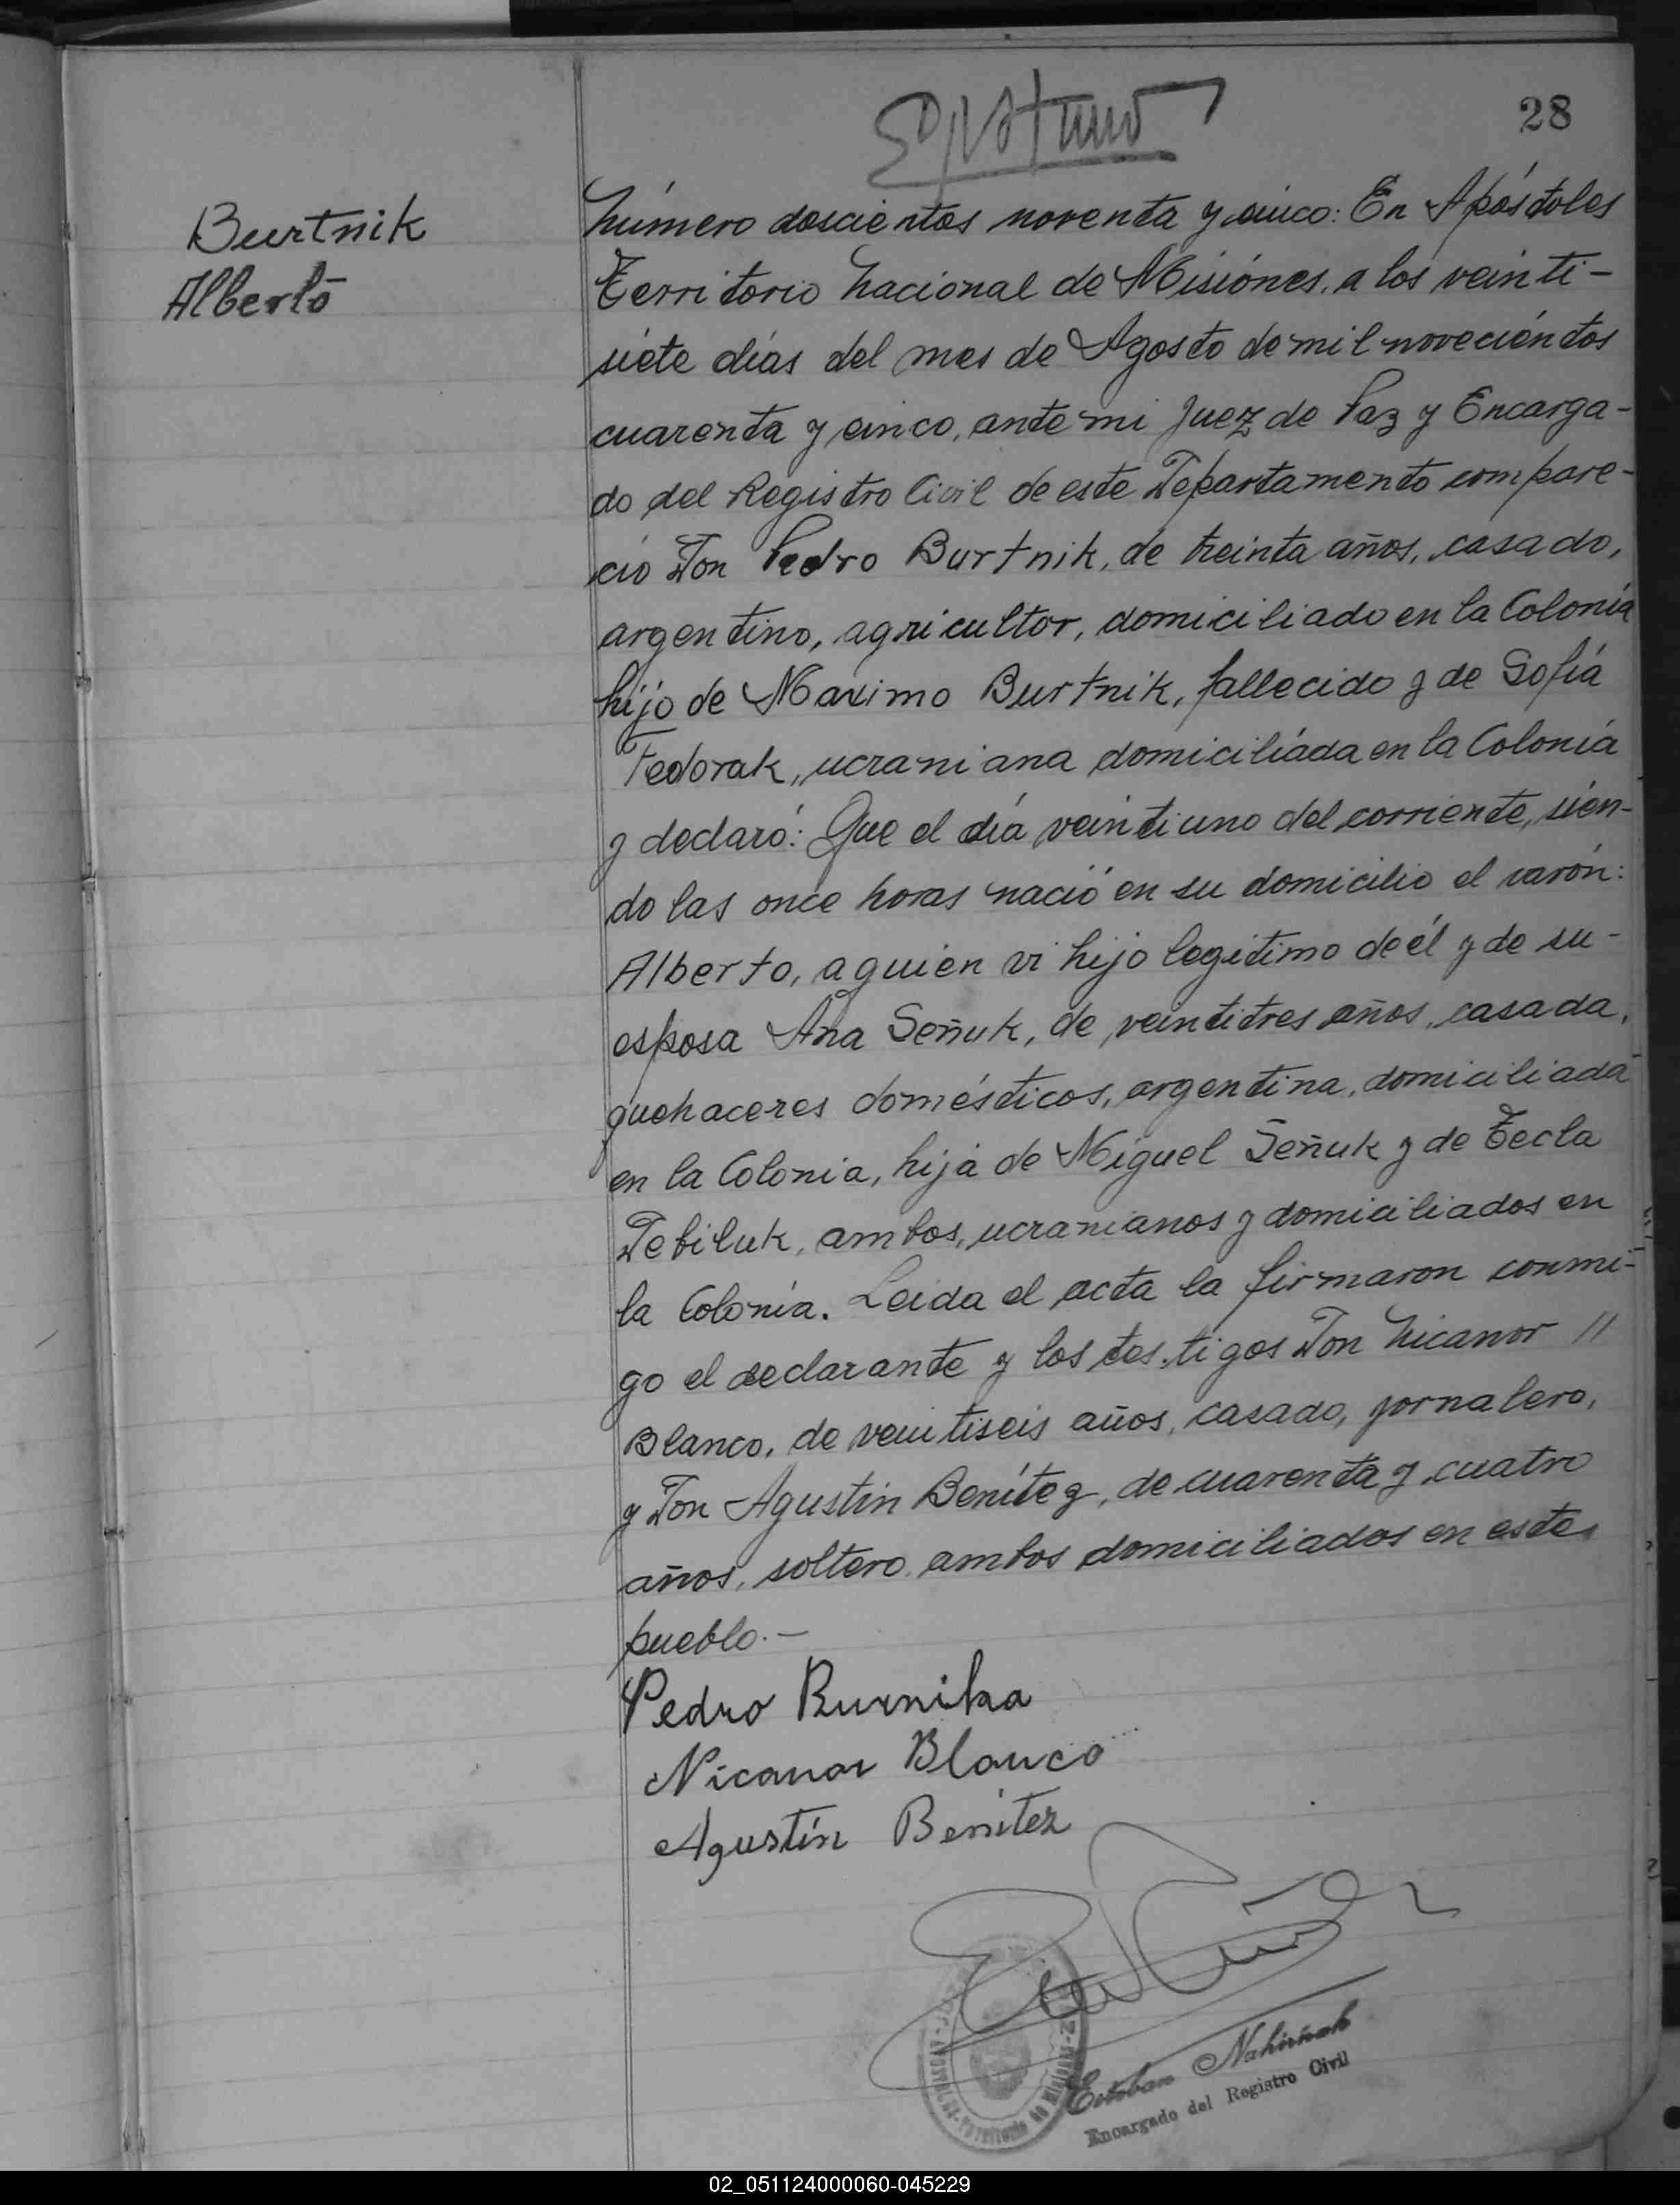 28
Burtnik
Alberto
Número doscientos noventa y cinco: En Apóstoles
Territorio Nacional de Misiónes, a los veinti-
siete días del mes de Agosto de mil novecientos
cuarenta y cinco, ante mi Juez de Paz y Encarga-
do del Registro Civil de este Departamento compare-
ció Don Pedro Burtnik, de treinta años, casado,
argentino, agricultor, domiciliado en la Colonia
hijo de Maximo Burtnik, fallecido y de Sofía
Fedorak, ucraniana domiciliada en la Colonia
y declaró: Que el día veintiuno del corriente, sien-
do las once horas nació en su domicilio el varón:
Alberto, a quien vi hijo legitimo de él y de su-
esposa Ana Señuk, de veintitres años, casada,
quehaceres domésticos, argentina, domiciliada
en la Colonia, hija de Miguel Señuk y de Tecla
Debiluk, ambos, ucranianos y domiciliados en
la Colonia. Leida el acta la firmaron conmi-
go el declarante y los testigos Don Nicanor //
Blanco, de veintiseis años, casado, jornalero,
y Don Agustin Benítez, de cuarenta y cuatro
años, soltero, ambos domiciliados en este
pueblo.-
Pedro Burnika
Nicanor Blanco
Agustín Benitez
Esteban Nahirñak
Encargado del Registro Civil
02_051124000060-045229